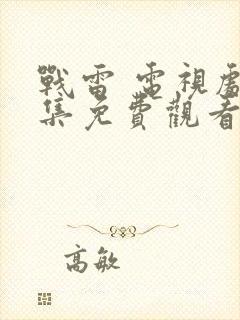 戰雷 電視
集免費觀看
高敏